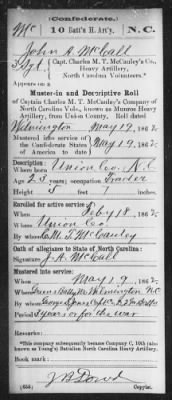 (Confederate.)
Mc 10 Batt'n H. Art'y. N.C.
John A. McCall
3 Sgt, Capt. Charles M. T. McCauley's Co.,
Heavy Artillery,
North Carolina Volunteers.*
Appears on a
Muster-in and Descriptive Roll
of Captain Charles M. T. McCauley's Company of
North Carolina Vols., known as the Monroe Heavy
Artillery, from Union county. Roll dated
Wilmington May 19, 1862.
Mustered into service of
the Confederate States
of America to date
May 19, 1862.
Description:
Where born Union Co. N.C.
Age 23 years; occupation Trader
Height 5 feet 7 inches.
Enrolled for active service:
When Feby 18, 1862.
Where Union Co
By C. M. T. McCauley
Oath of allegiance to State of North Carolina:
Signature J. A. McCall
Mustered into service:
When May 19, 1862.
Where Wilmington N.C.
By George
Period 3 years or for the war
Remarks:
*This company subsequently became Company C, 10th (also
known as Young's) Battalion North Carolina Heavy Artillery.
Book mark:
J B Dowd
(655) Copyist.